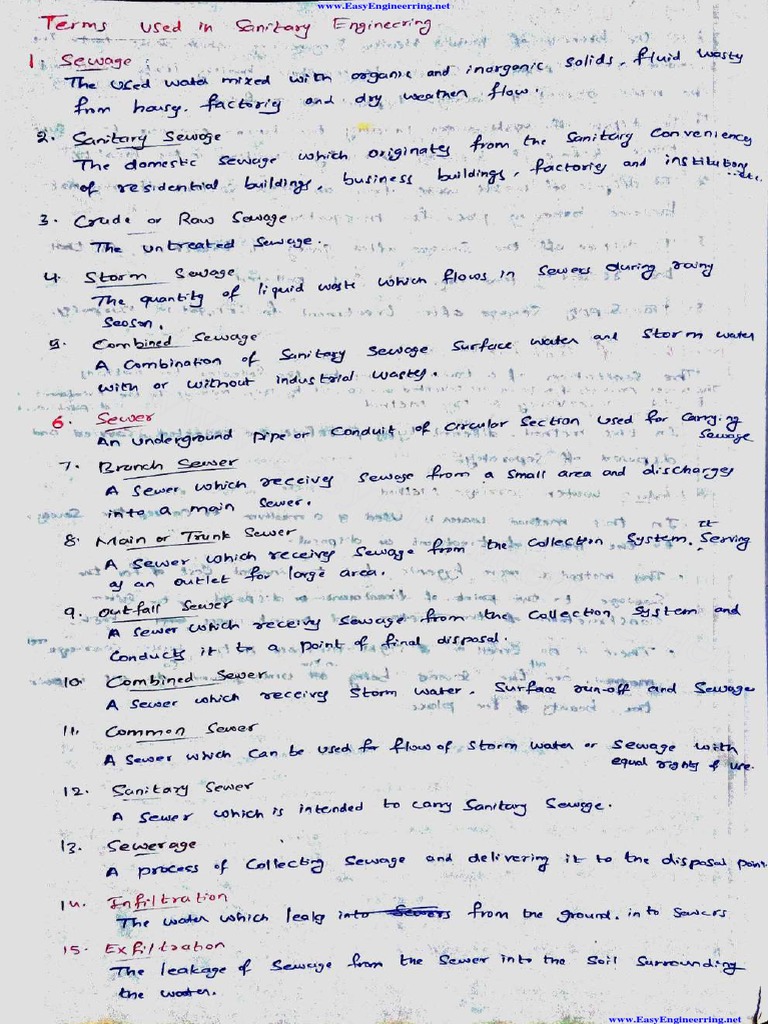 www.EasyEngineerring.net
Terms used in Sanitary Engineering
1. Sewage :
The used water mixed with organic and inorganic solids, fluid wastes
from houses, factories and dry weather flow.
2. Sanitary Sewage
The domestic sewage which originates from the sanitary conveniences
of residential buildings, business buildings, factories and institutions
etc.
3. Crude or Raw Sewage
The untreated sewage.
4. Storm Sewage
The quantity of liquid waste which flows in sewers during rainy
season.
5. Combined Sewage
A combination of sanitary sewage surface water and storm water
with or without industrial wastes.
6. Sewer
An underground pipe or conduit of circular section used for carrying
sewage
7. Branch Sewer
A sewer which receives sewage from a small area and discharges
into a main sewer.
8. Main or Trunk Sewer
A sewer which receives sewage from the collection system. It serving
as an outlet for large area.
9. Outfall Sewer
A sewer which receives sewage from the collection system and
conducts it to a point of final disposal.
10. Combined Sewer
A sewer which receives storm water, surface run-off and sewage
11. Common Sewer
A sewer which can be used for flow of storm water or sewage with
equal rights of use.
12. Sanitary Sewer
A sewer which is intended to carry sanitary sewage.
13. Sewerage
A process of collecting sewage and delivering it to the disposal point.
14. Infiltration
The water which leaks into sewers from the ground. into sewers
15. Exfiltration
The leakage of sewage from the sewer into the soil surrounding
the water.
www.EasyEngineerring.net